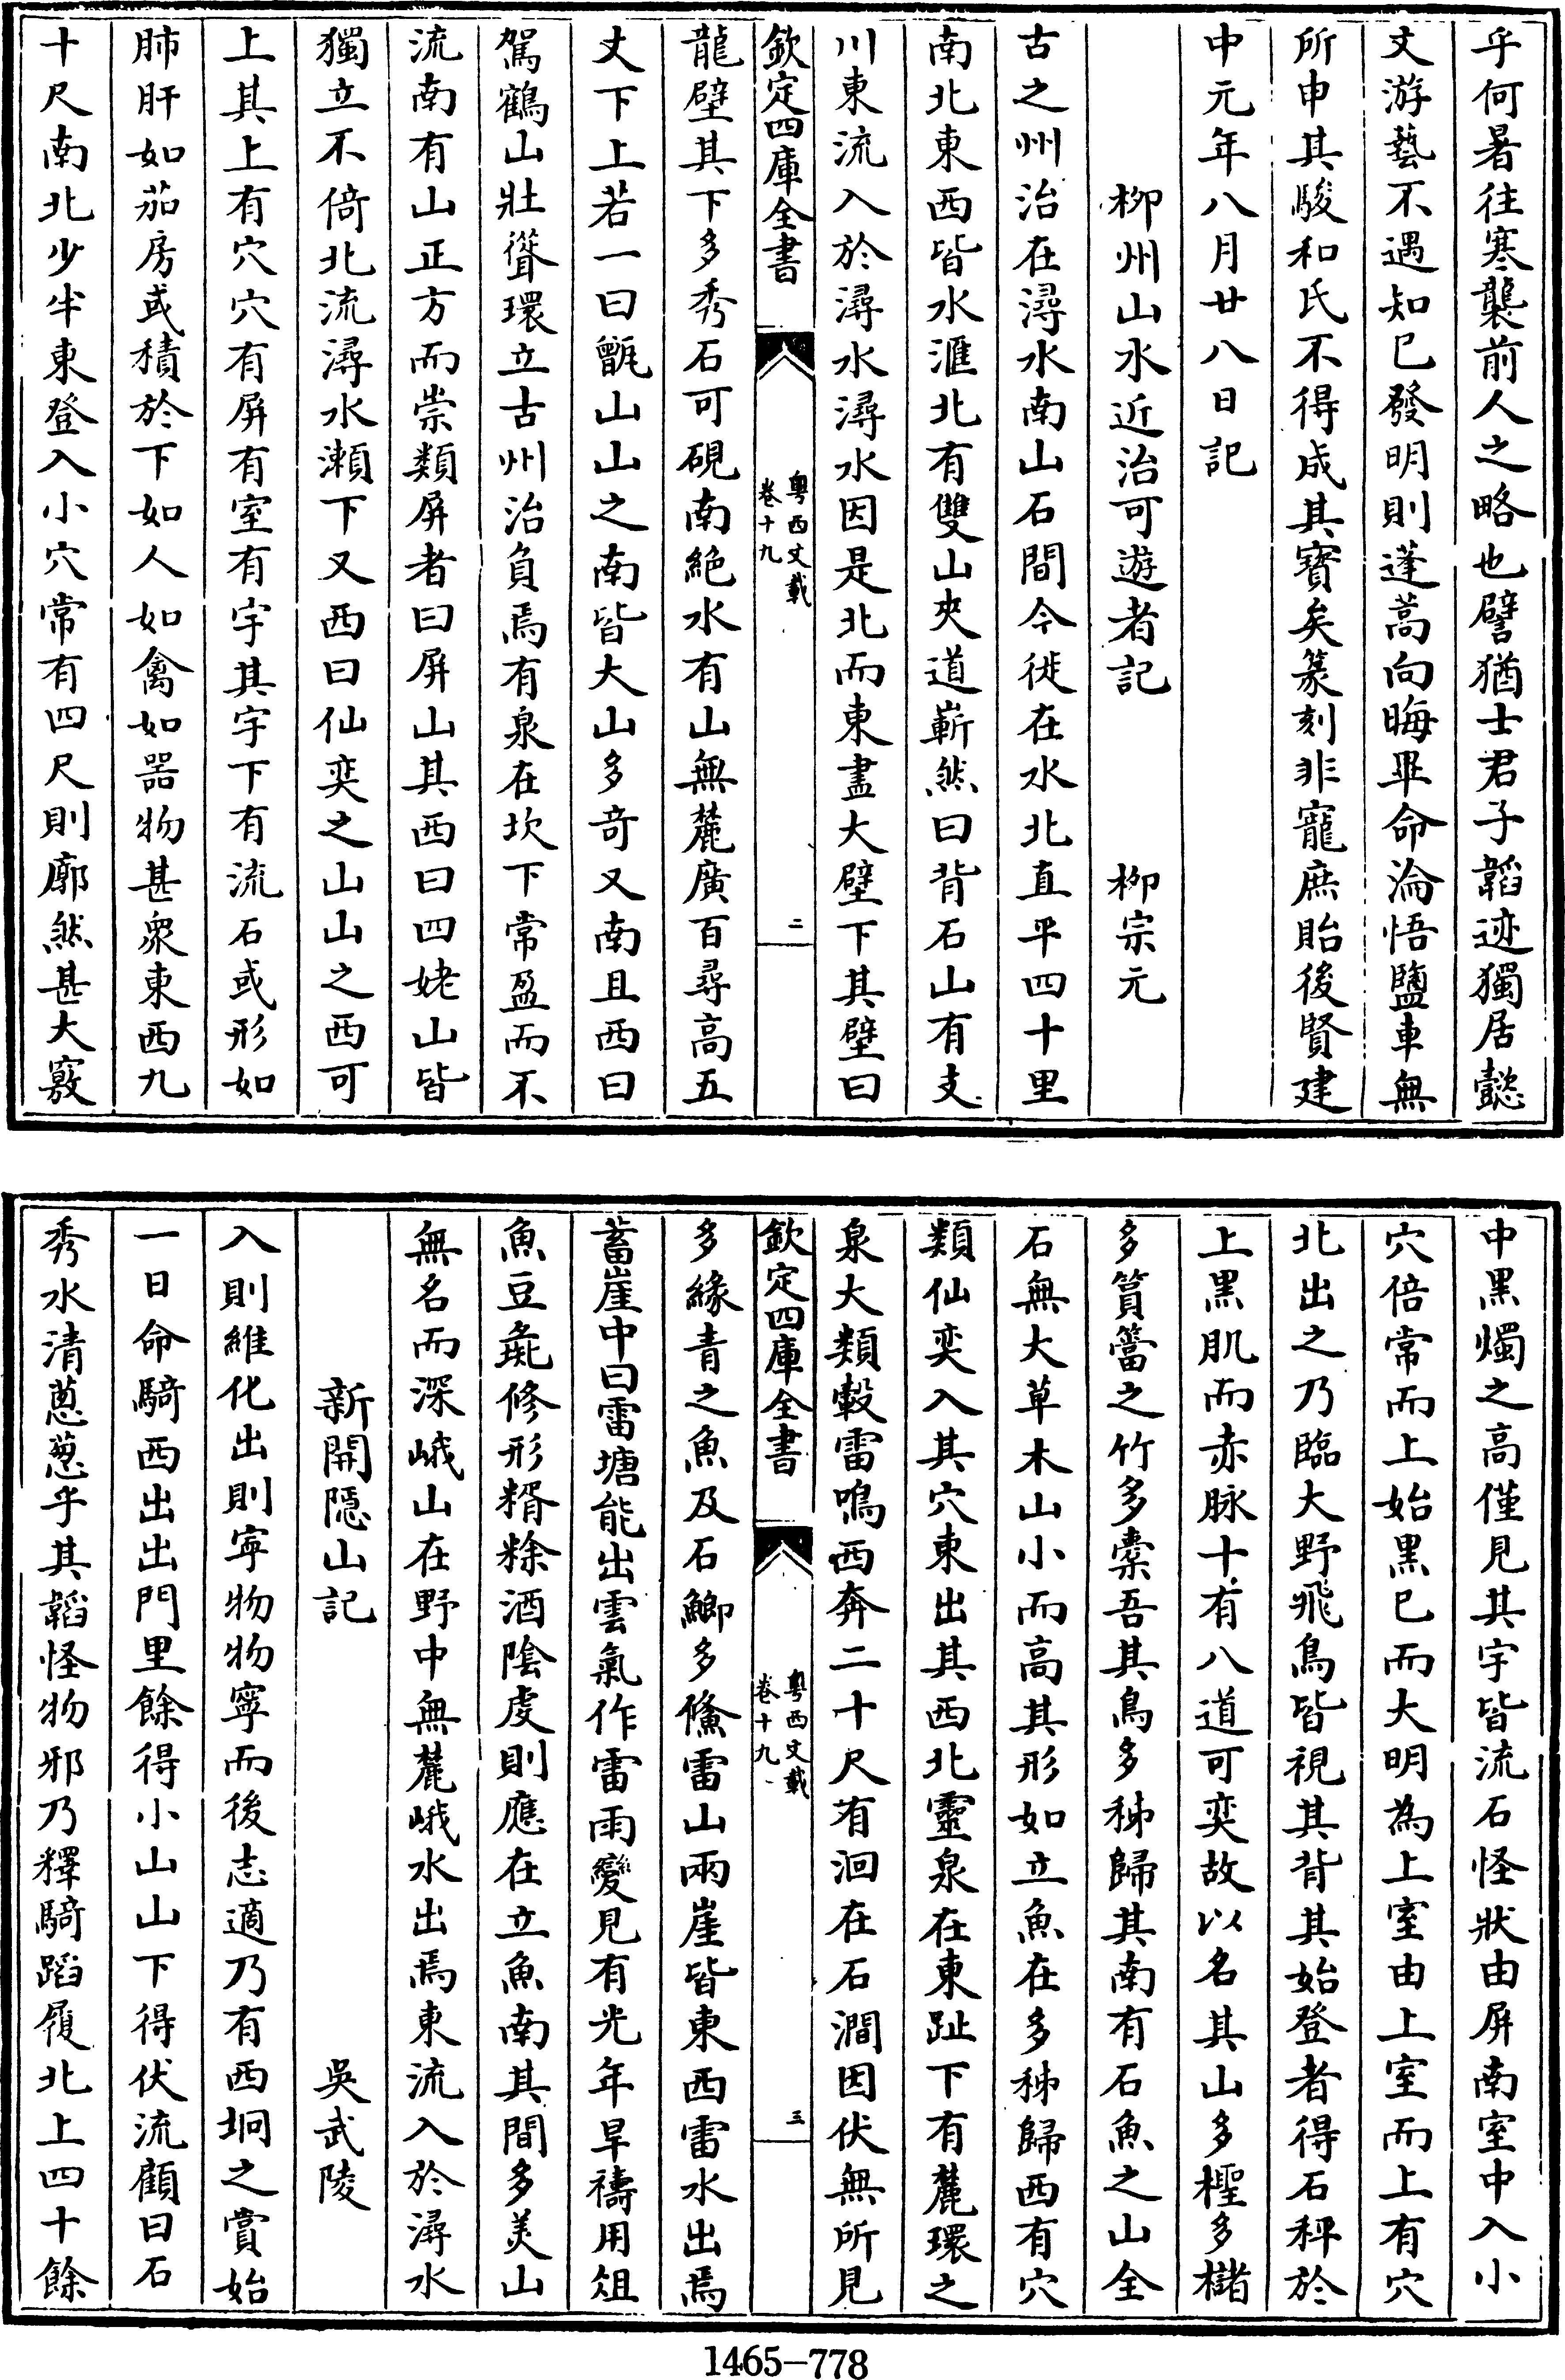 乎何暑往寒襲前人之略也譬猶士君子韜迹獨居懿
文游藝不遇知已發明則蓬蒿向晦畢命淪悟鹽車無
所申其駿和氏不得成其寳矣篆刻非寵庶貽後賢建
中元年八月廿八日記
柳州山水近治可遊者記　柳宗元
古之州治在潯水南山石間今徙在水北直平四十里
南北東西皆水滙北有雙山夾道嶄然曰背石山有支
川東流入於潯水潯水因是北而東盡大壁下其壁曰
欽定四庫全書　粤西文載卷十九　二
龍壁其下多秀石可硯南絶水有山無麓廣百尋高五
丈下上若一曰甑山山之南皆大山多奇又南且西曰
駕鶴山壯聳環立古州治負焉有泉在坎下常盈而不
流南有山正方而崇類屏者曰屏山其西曰四姥山皆
獨立不倚北流潯水瀬下又西曰仙奕之山山之西可
上其上有穴穴有屏有室有宇其宇下有流石或形如
肺肝如茄房或積於下如人如禽如噐物甚衆東西九
十尺南北少半東登入小穴常有四尺則廓然甚大竅
中黒燭之高僅見其宇皆流石怪狀由屏南室中入小
穴倍常而上始黒已而大明為上室由上室而上有穴
北出之乃臨大野飛鳥皆視其背其始登者得石枰於
上黒肌而赤脉十有八道可奕故以名其山多檉多櫧
多篔簹之竹多槖吾其鳥多秭歸其南有石魚之山全
石無大草木山小而高其形如立魚在多秭歸西有穴
類仙奕入其穴東出其西北靈泉在東趾下有麓環之
泉大類轂雷鳴西奔二十尺有洄在石澗因伏無所見
欽定四庫全書　粤西文載卷十九　三
多緑青之魚及石鯽多鯈雷山兩崖皆東西雷水出焉
蓄崖中曰雷塘能出雲氣作雷雨變見有光年旱禱用俎
魚豆彘修形糈稌酒隂虔則應在立魚南其間多美山
無名而深峨山在野中無麓峨水出焉東流入於潯水
新開隱山記　吳武陵
入則維化出則寜物物寧而後志適乃有西坰之賞始
一日命騎西出出門里餘得小山山下得伏流顧曰石
秀水清蔥蔥乎其韜怪物邪乃釋騎蹈履北上四十餘
1465-778